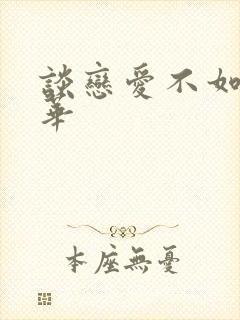 談戀愛不如
華
本座無憂